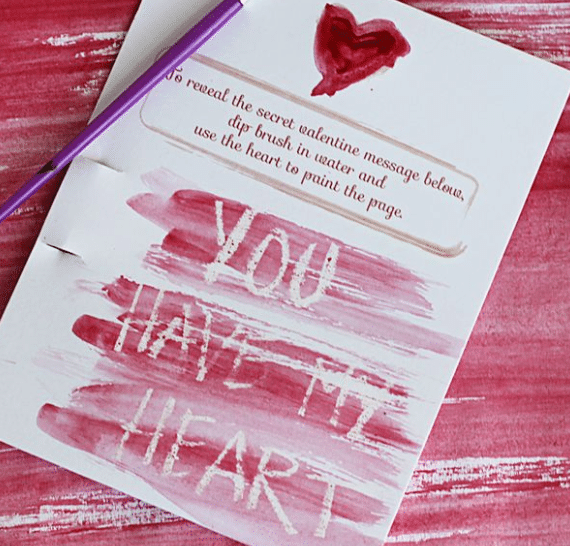 To reveal the secret valentine message below,
dip brush in water and
use the heart to paint the page.
YOU
HAVE MY
HEART